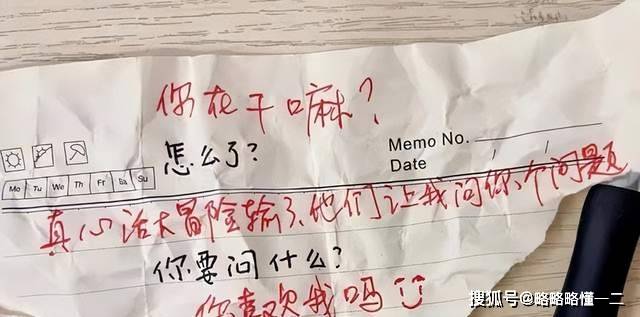 你在干嘛?
怎么了?
Memo No.
Date / /
Mo Tu We Th Fr Sa Su
真心话大冒险输了、他们让我问你个问题
你要问什么?
你喜欢我吗
搜狐号@略略略懂一二